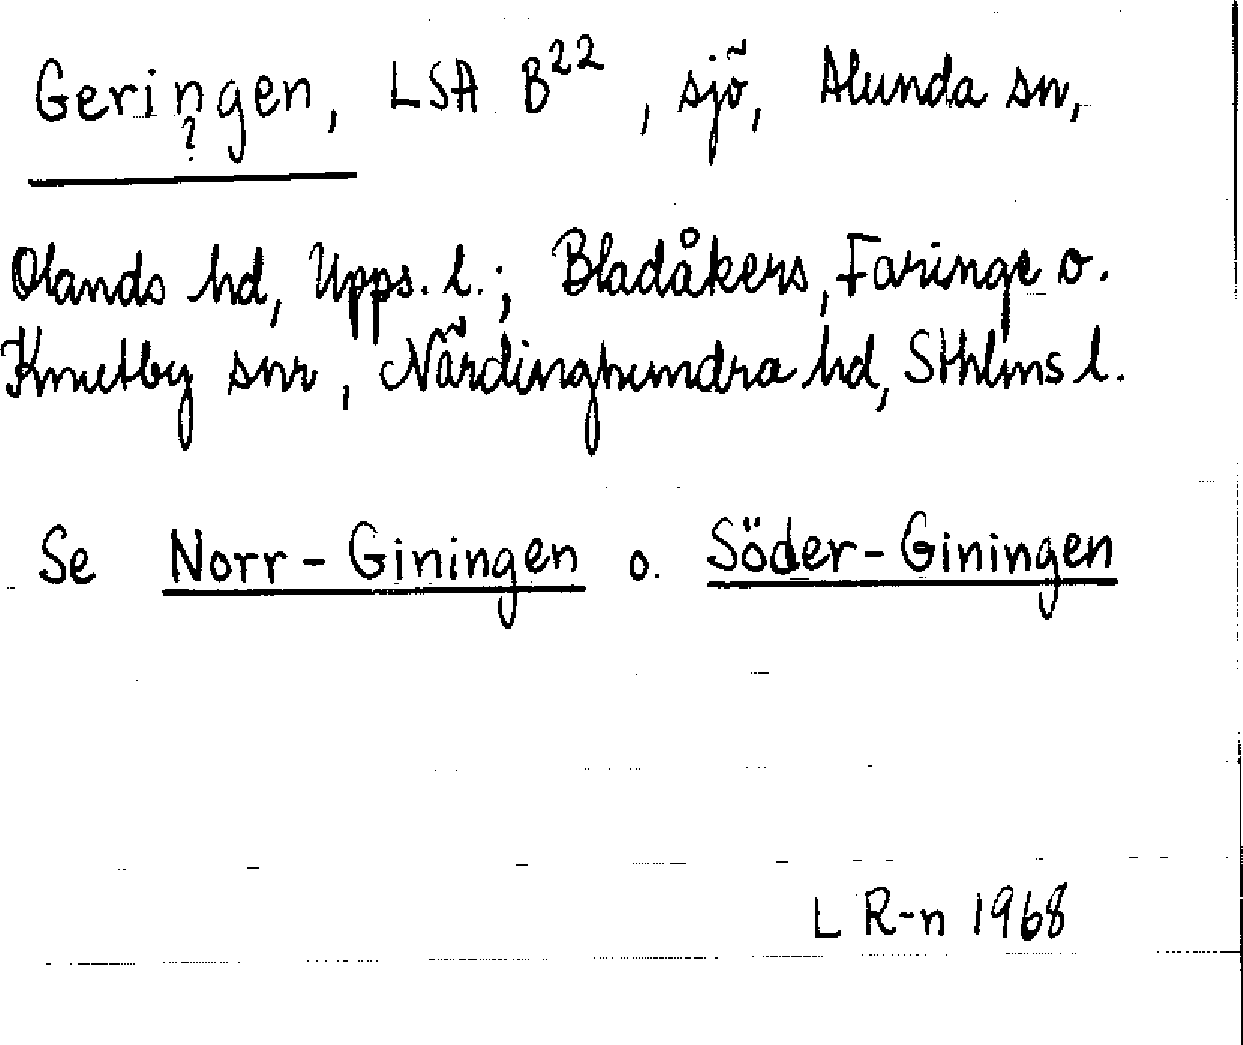 Geringen, LSA B22, sjö, Alunda sn,
?
Olands hd, Upps. l.; Bladåkers, Faringe o.
Knutby snr, Närdinghundra hd, Sthlms l.
Se Norr-Giningen o. Söder-Giningen
L R-n 1968